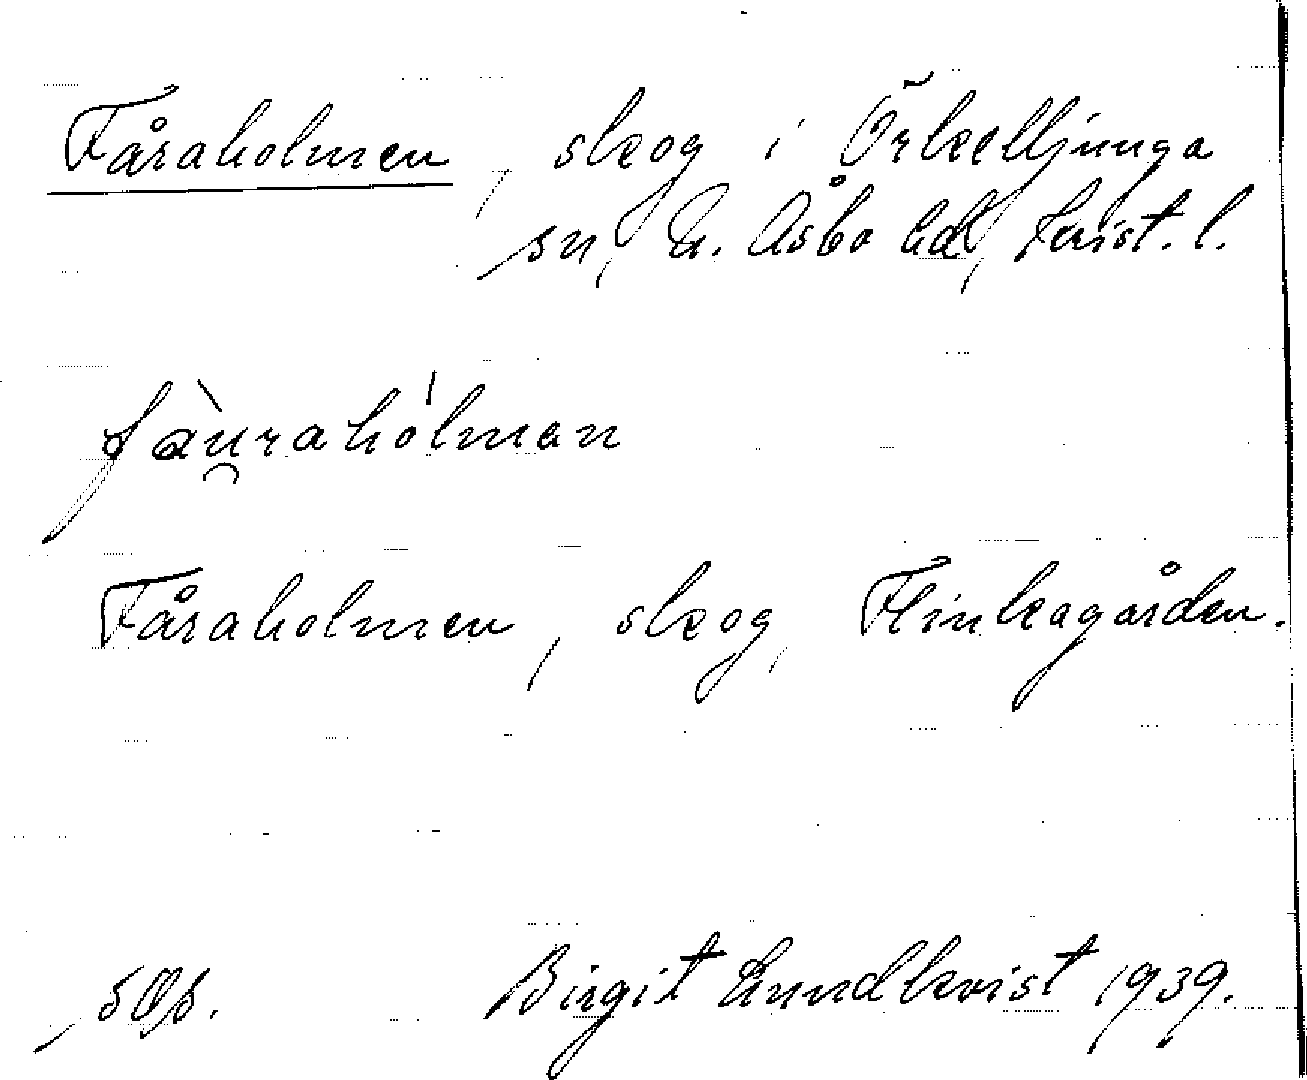 Fåraholmen, skog i Örkelljunga
sn, N. Åsbo hd, Krist. l.
fàu̯rahólmen
Fåraholmen, skog, Flinkagården.
Birgit Lundkvist 1939.